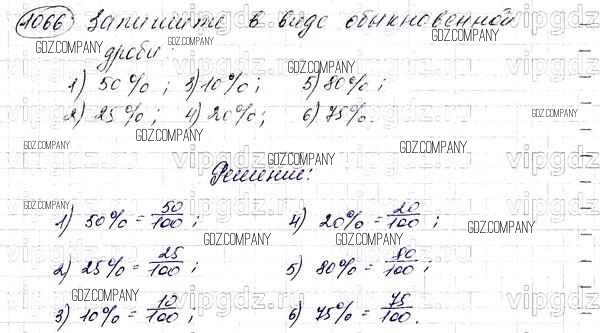 1066 Запишите в виде обыкновенной
дроби:
1) 50%; 3) 10%; 5) 80%;
2) 25%; 4) 20%; 6) 75%.
Решение:
1) 50% = 50/100; 4) 20% = 20/100;
2) 25% = 25/100; 5) 80% = 80/100;
3) 10% = 10/100; 6) 75% = 75/100.
GDZ.COMPANY
vipgdz.ru